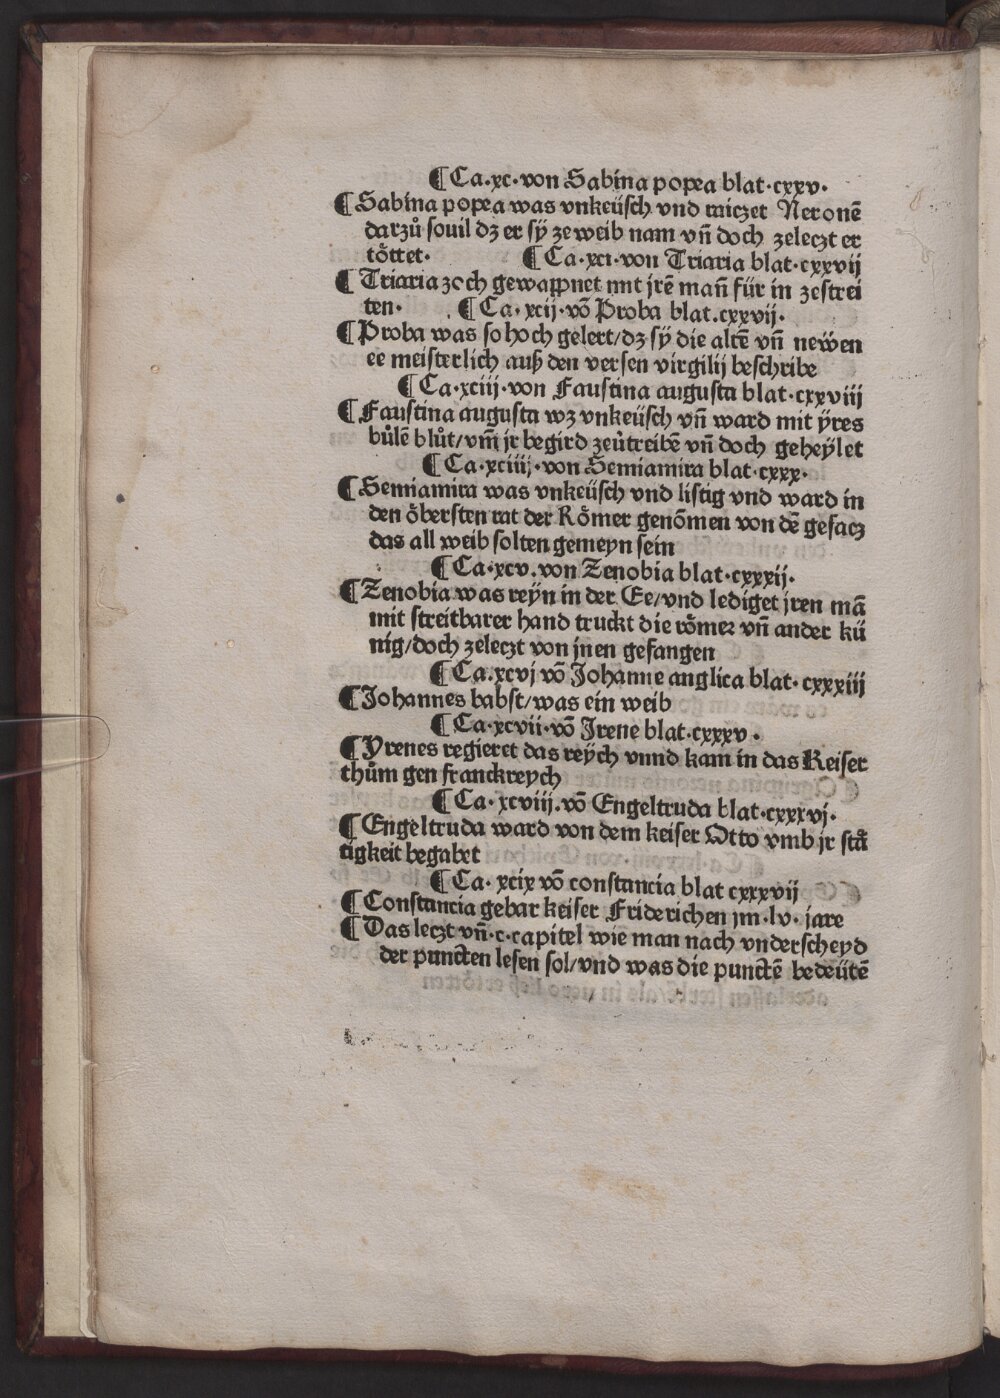 ¶Ca.xc.von Sabina popea blat.cxxv.
¶Sabina popea was vnkeüsch vnd raiczet Neronē
darzů souil dz er sÿ ze weib nam vn̄ doch zeleczt er
töttet. ¶Ca.xci.von Triaria blat.cxxvij
¶Triaria zoch gewappnet mit jrē man̄ für in zestrei
ten. ¶Ca.xcij.vō Proba blat.cxxvij.
¶Proba was so hoch gelert/dz sÿ die altē vn̄ neẅen
ee meisterlich auß den versen virgilij beschribe
¶Ca.xciij.von Faustina augusta blat.cxxviij
¶Faustina augusta wz vnkeüsch vn̄ ward mit ÿres
bůlē blůt/vm̄ jr begird zeůtreibē vn̄ doch geheÿlet
¶Ca.xciiij.von Semiamira blat.cxxx.
¶Semiamira was vnkeüsch vnd listig vnd ward in
den öbersten rat der Römer genōmen von dē gesacz
das all weib solten gemeyn sein
¶Ca.xcv.von Zenobia blat.cxxxij.
¶Zenobia was reÿn in der Ee/vnd lediget jren mā
mit streitbarer hand truckt die römer vn̄ ander kü
nig/doch zeleczt von jnen gefangen
¶Ca.xcvj vō Johanne anglica blat.cxxxiij
¶Johannes babst/was ein weib
¶Ca.xcvij.vō Jrene blat.cxxxv.
¶Yrenes regieret das reÿch vnnd kam in das Keiser
thům gen franckreych
¶Ca.xcviij.vō Engeltruda blat.cxxxvj.
¶Engeltruda ward von dem keiser Otto vmb jr stå
tigkeit begabet
¶Ca.xcix vō constancia blat cxxxvij
¶Constancia gebar keiser Friderichen jm.lv.jare
¶Das leczt vn̄.c.capitel wie man nach vnderscheyd
der puncten lesen sol/vnd was die punctē bedeütē